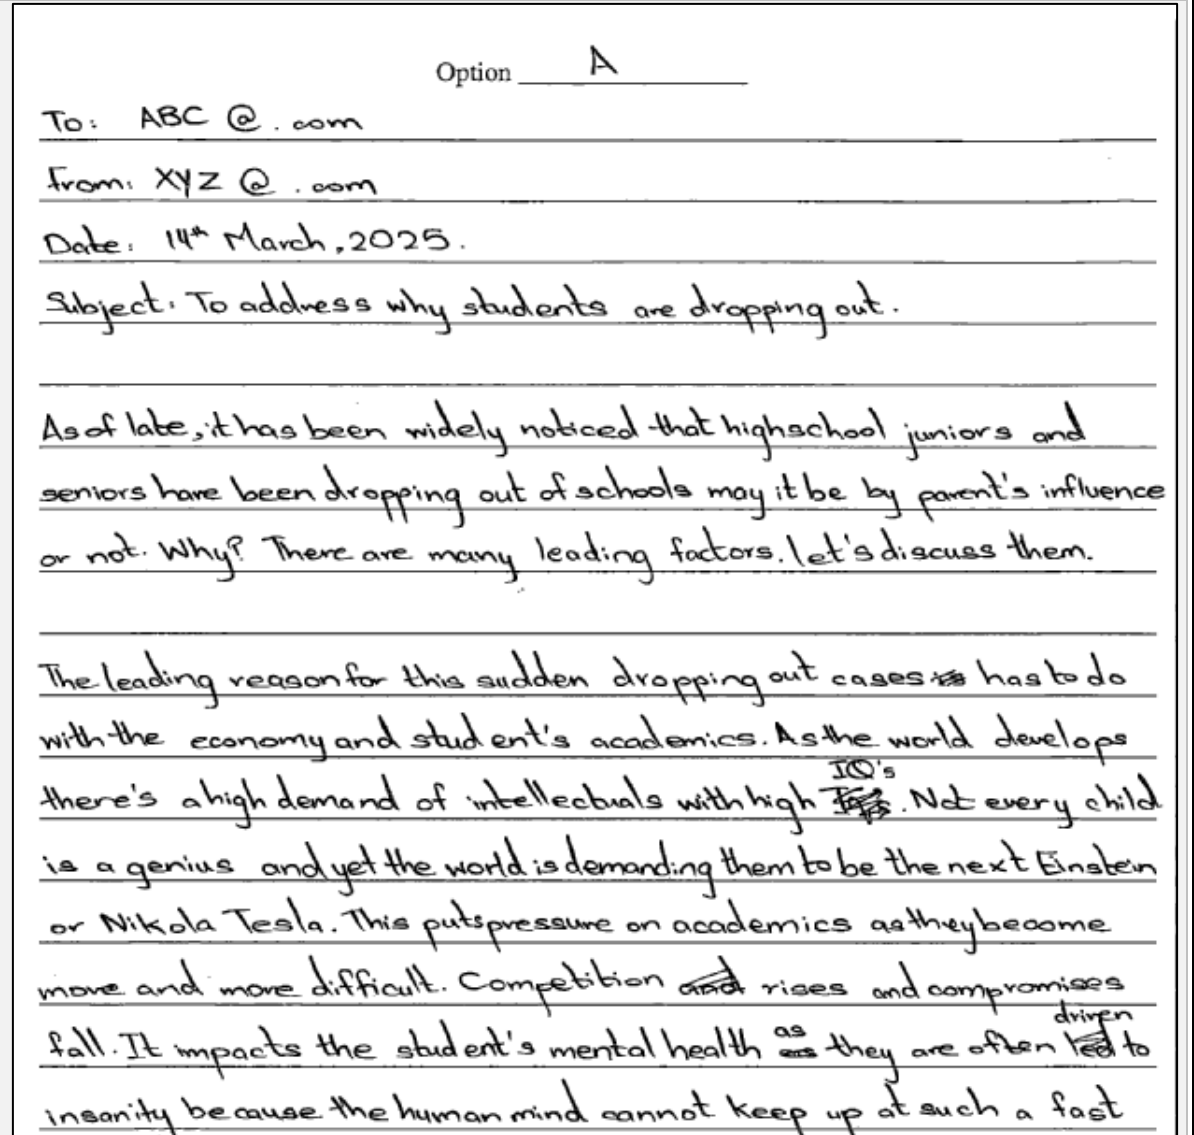 Option A
To: ABC @ . com
From: XYZ @ . com
Date: 14th March, 2025.
Subject: To address why students are dropping out.
As of late, it has been widely noticed that highschool juniors and
seniors have been dropping out of schools may it be by parent's influence
or not. Why? There are many leading factors. let's discuss them.
The leading reason for this sudden dropping out cases has to do
with the economy and student's academics. As the world develops
there's a high demand of intellectuals with high IQ's. Not every child
is a genius and yet the world is demanding them to be the next Einstein
or Nikola Tesla. This puts pressure on academics as they become
more and more difficult. Competition rises and compromises
fall. It impacts the student's mental health as they are often driven to
insanity because the human mind cannot keep up at such a fast